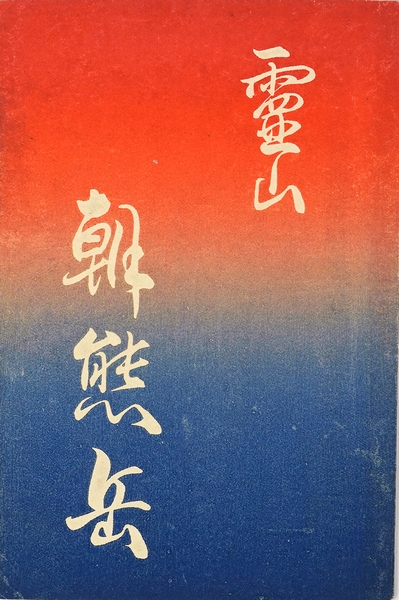 霊山
朝熊岳